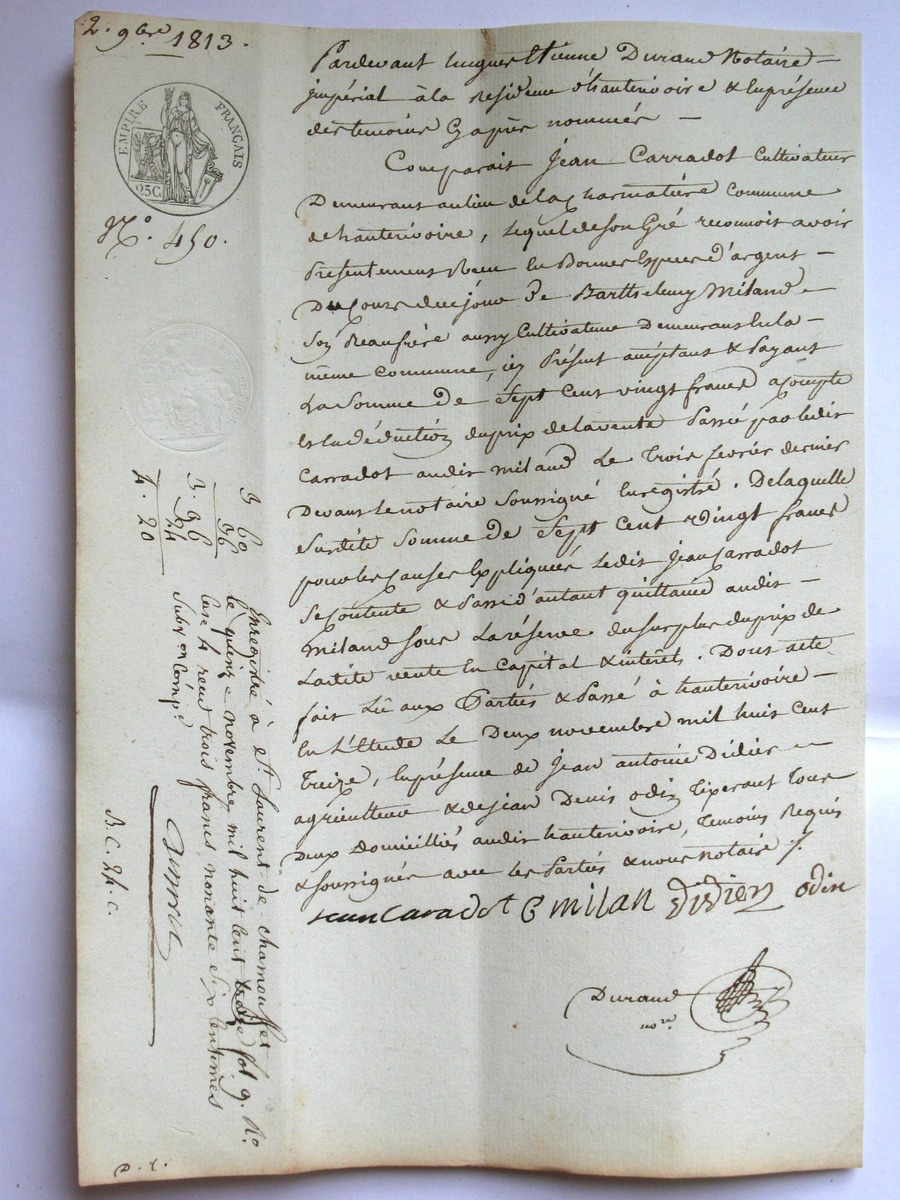 2. 9bre 1813.
EMPIRE FRANÇAIS
25C
N.o 450.
Pardevant hugues Etienne Durand Notaire
jmpérial à la Residence d'hauterivoire & En présence
des temoins Cy après nommés
Comparait Jean Carradot Cultivateur
Demeurant au lieu de la Charmatière Commune
de hauterivoire, lequel de son Gré reconnoit avoir
présentement Recu En Bonnes Especes d'argent
Du Cours de ce jour De Barthelemy Miland
Son Beaufrère aussy Cultivateur Demeurant En la
même Commune, icy Présent acceptant & Payant
La somme De Sept Cent vingt francs acompte
Et En déduction du prix de la vente Passé par ledit
Carradot audit miland Le Trois fevrier dernier
Devant le notaire soussigné Enregistré. De laquelle
susdite somme De Sept Cent vingt francs
pour les Causes Expliquées ledit Jean Carradot
se Contente & Passe d'autant quittance audit
miland sous La réserve du surplus du prix de
Ladite vente En Capital & interets. Dont acte
fait Lû aux Parties & Passé à hauterivoire
En L'Etude Le Deux novembre mil huit cent
Treize, En présence de Jean antoine Didier
agriculteur & de jean Denis odin Tixerant Tous
Deux Domiciliés audit hauterivoire, Temoins Requis
& soussignés avec les Parties & nous notaire
jean Caradot B milan Didier odin
Durand
nore
3 60
36
3. 96
24
4. 20
Enregistré à St. Laurent-de-chamousset
le quinze novembre mil huit cent treize fol 9. Ro
case 4 recu trois francs nonante six centimes
Subv en Comp.
B. C. 24. c.